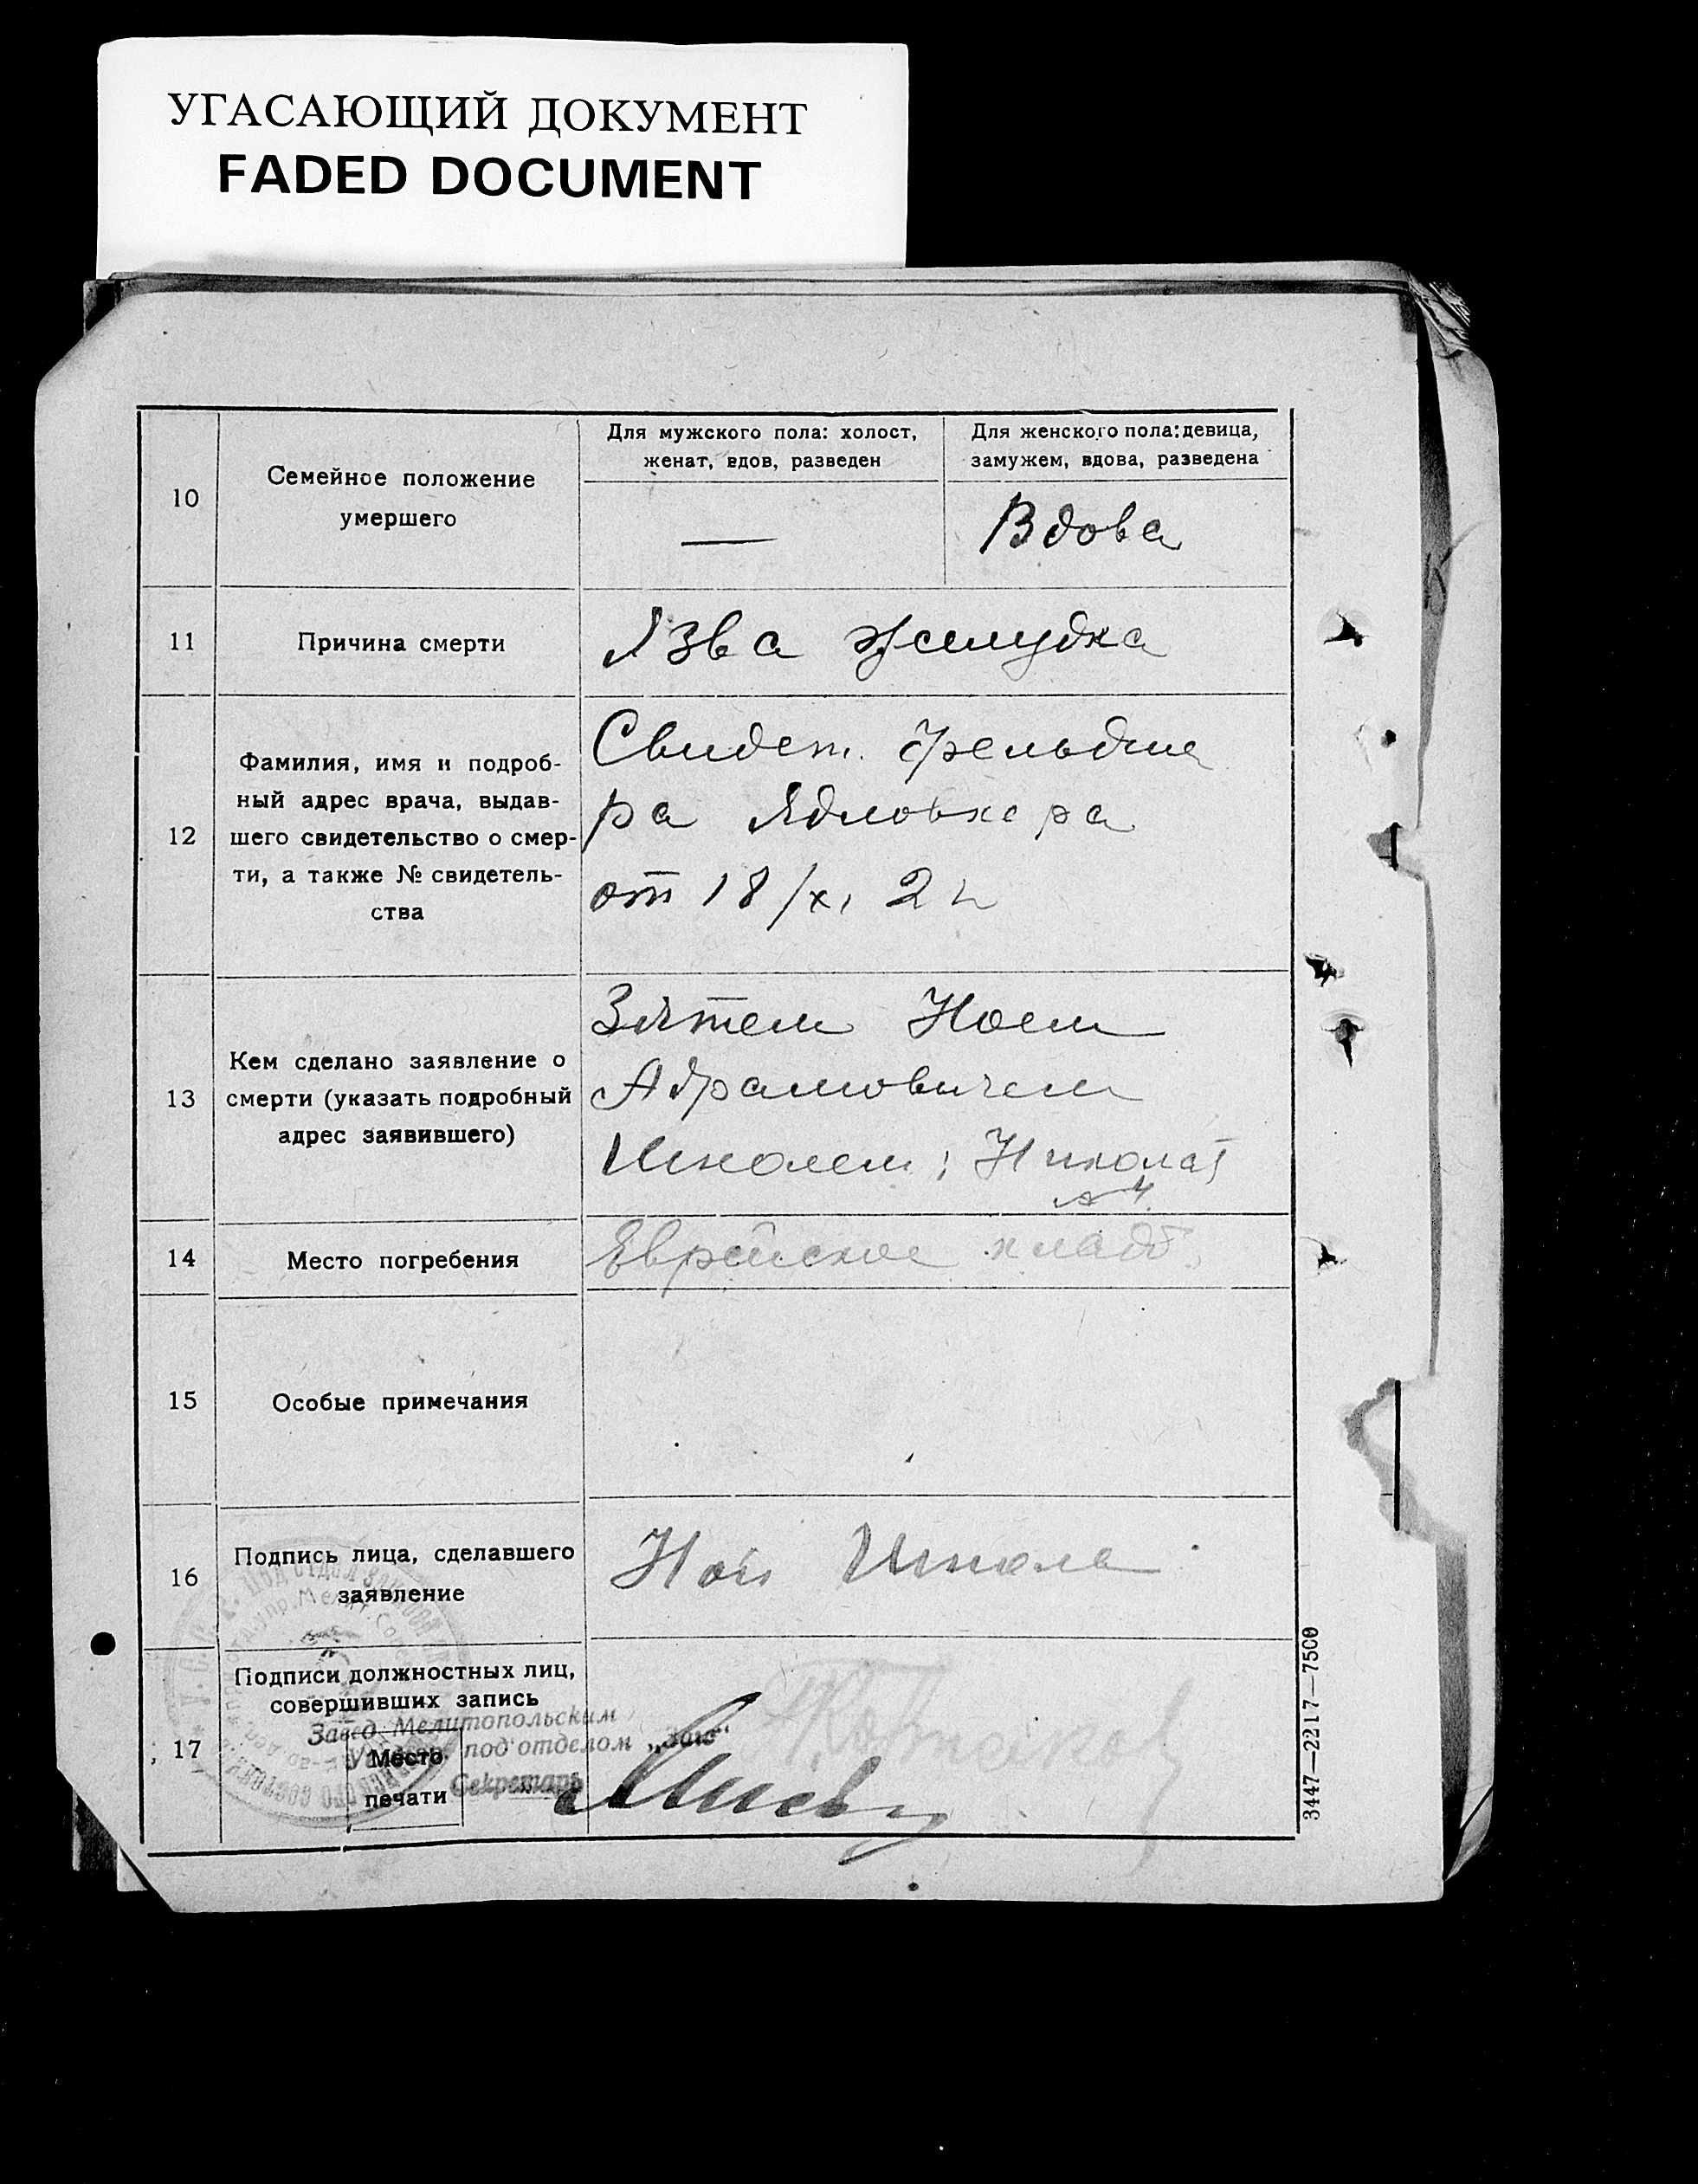 УГАСАЮЩИЙ ДОКУМЕНТ
FADED DOCUMENT
10
Семейное положение
умершего
Для мужского пола: холост,
женат, вдов, разведен
Для женского пола: девица,
замужем, вдова, разведена
—
Вдова
11
Причина смерти
Язва желудка
12
Фамилия, имя и подроб-
ный адрес врача, выдав-
шего свидетельство о смер-
ти, а также № свидетель-
ства
Свидет. фельдше
ра Ядловкера
от 18/XI 2
13
Кем сделано заявление о
смерти (указать подробный
адрес заявившего)
Зятем Ноем
Абрамовичем
14
Место погребения
Еврейское кладб.
15
Особые примечания
16
Подпись лица, сделавшего
заявление
Ной
17
Подписи должностных лиц,
совершивших запись
Завед. Мелитопольским
под'отделом „Загс“
Секретарь
Место
печати
3447—2217—7500